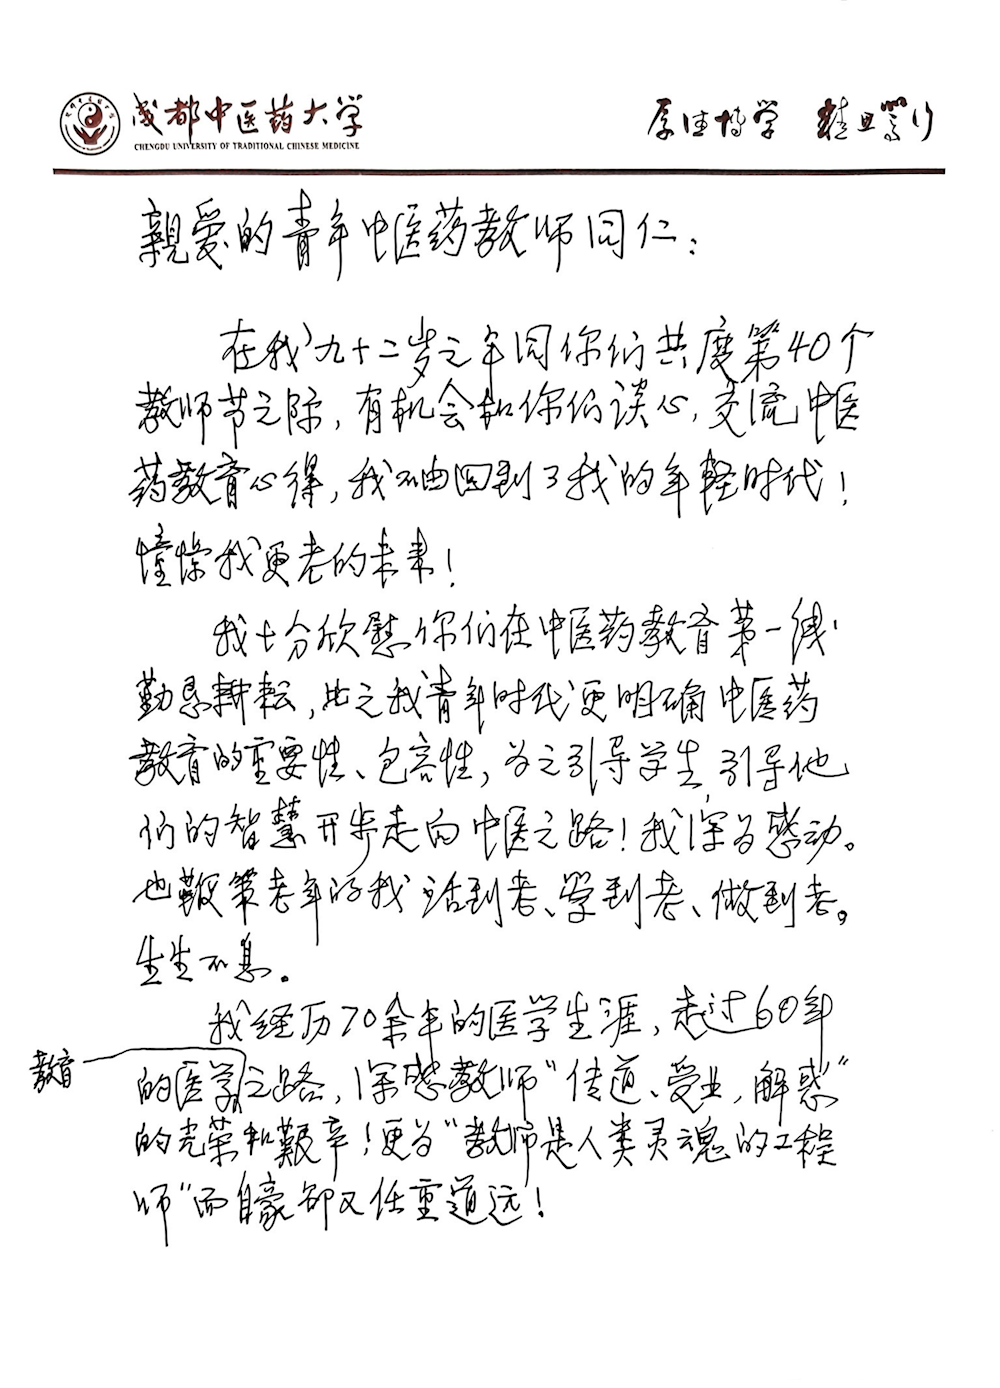 成都中医药大学
CHENGDU UNIVERSITY OF TRADITIONAL CHINESE MEDICINE
厚德博学 精思笃行
親爱的青年中医药教师同仁：
在我九十二岁之年同你们共度第40个
教师节之际，有机会和你们谈心，交流中医
药教育心得，我不由回到了我的年轻时代！
憧憬我更老的未来！
我十分欣慰你们在中医药教育第一线
勤恳耕耘，比之我青年时代更明确中医药
教育的重要性、包容性，为之引导学生，引导他
们的智慧开步走向中医之路！我深为感动。
也鞭策老年的我活到老、学到老、做到老。
生生不息。
我经历70余年的医学生涯，走过60年
教育
的医学之路，深感教师“传道、受业，解惑”
的光荣和艰辛！更为“教师是人类灵魂的工程
师”而自豪却又任重道远！